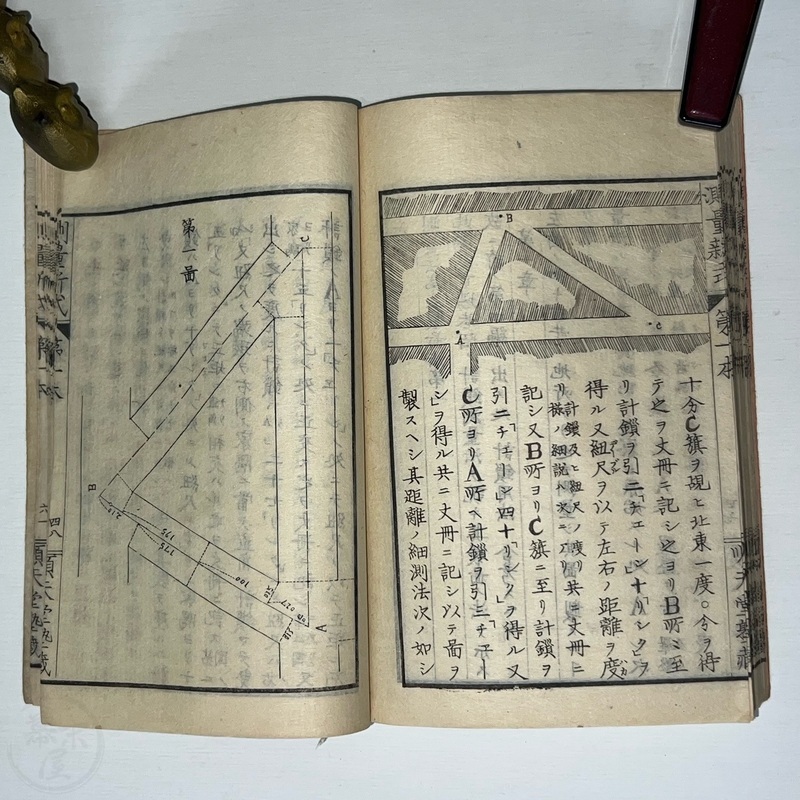 測量新式 第一本
順天堂塾蔵
B
A
C
十分C籏ヲ覘ヒ北東一度〇分ヲ得
テ之ヲ丈冊ニ記シ之ヨリB所ニ至
リ計鎖ヲ引ニ「チェーン」十「リンク」ヲ
得ル又紐尺ヲ以テ左右ノ距離ヲ度
計鎖及ヒ紐尺ノ度リ
様ノ細説ハ次ニアリ
リ共ニ丈冊ニ
記シ又B所ヨリC籏ニ至リ計鎖ヲ
引ニ「チェーン」四十「リンク」ヲ得ル又
C所ヨリA所ヘ計鎖ヲ引ニ「チェー
ン」ヲ得ル共ニ丈冊ニ記シ以テ圖ヲ
製スヘシ其距離ノ細測法次ノ如シ
第一圖
C
B
A
175
175
100
測量新式 第一本
順天堂塾蔵